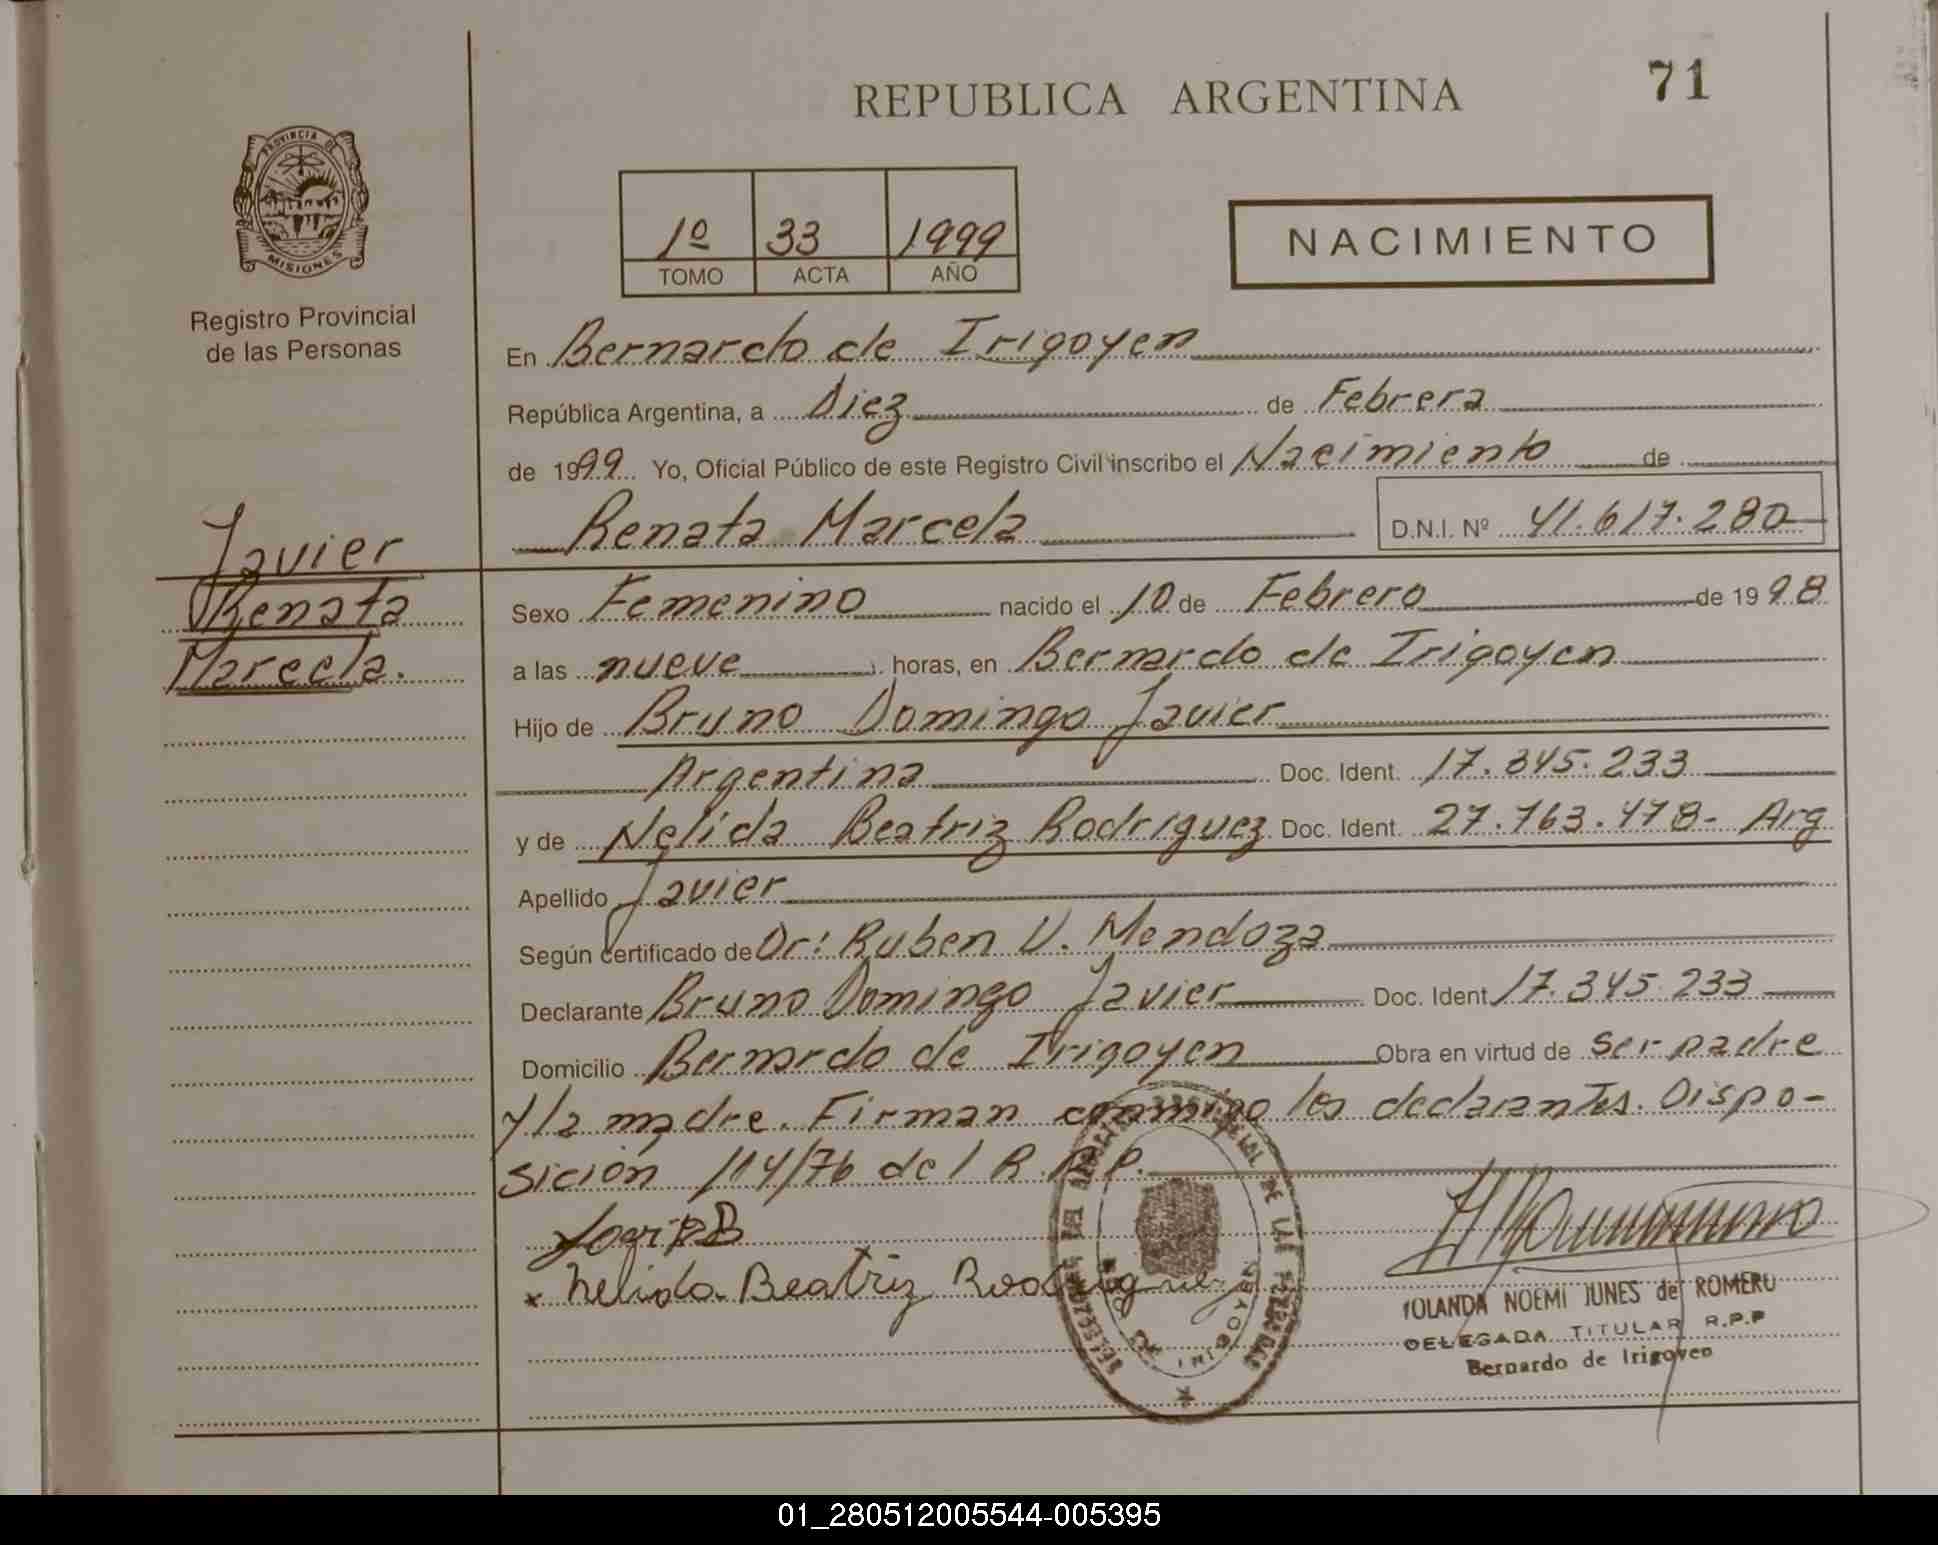 REPUBLICA ARGENTINA
71
PROVINCIA DE
MISIONES
Registro Provincial
de las Personas
1º 33 1999
TOMO ACTA AÑO
NACIMIENTO
En Bernardo de Irigoyen
República Argentina, a Diez de Febrera
de 1999 Yo, Oficial Público de este Registro Civil inscribo el Nacimiento de
Renata Marcela D.N.I. Nº 41.617.280
Javier
Renata
Marcela.
Sexo Femenino nacido el 10 de Febrero de 1998
a las nueve horas, en Bernardo de Irigoyen
Hijo de Bruno Domingo Javier
Argentina Doc. Ident. 17.345.233
y de Nelída Beatriz Rodriguez Doc. Ident. 27.763.478- Arg
Apellido Javier
Según certificado de Dr: Ruben V. Mendoza
Declarante Bruno Domingo Javier Doc. Ident 17.345.233
Domicilio Bernardo de Irigoyen Obra en virtud de ser padre
y la madre. Firman conmigo los declarantes. Dispo-
sición 114/76 del R.P.P.
x Nelida Beatriz Rodriguez
YOLANDA NOEMI JUNES de ROMERO
DELEGADA TITULAR R.P.P
Bernardo de Irigoyen
01_280512005544-005395